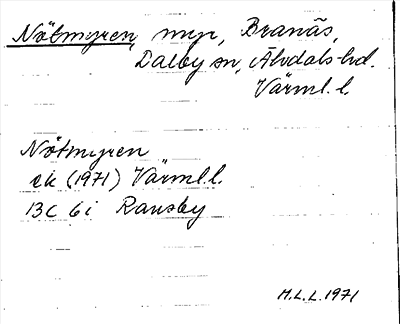 Nötmyren, myr, Branäs,
Dalby sn, Älvdals hd.
Värml. l.
Nötmyren
ek (1971) Värml.l.
13C 6i Ransby
M.L.L. 1971